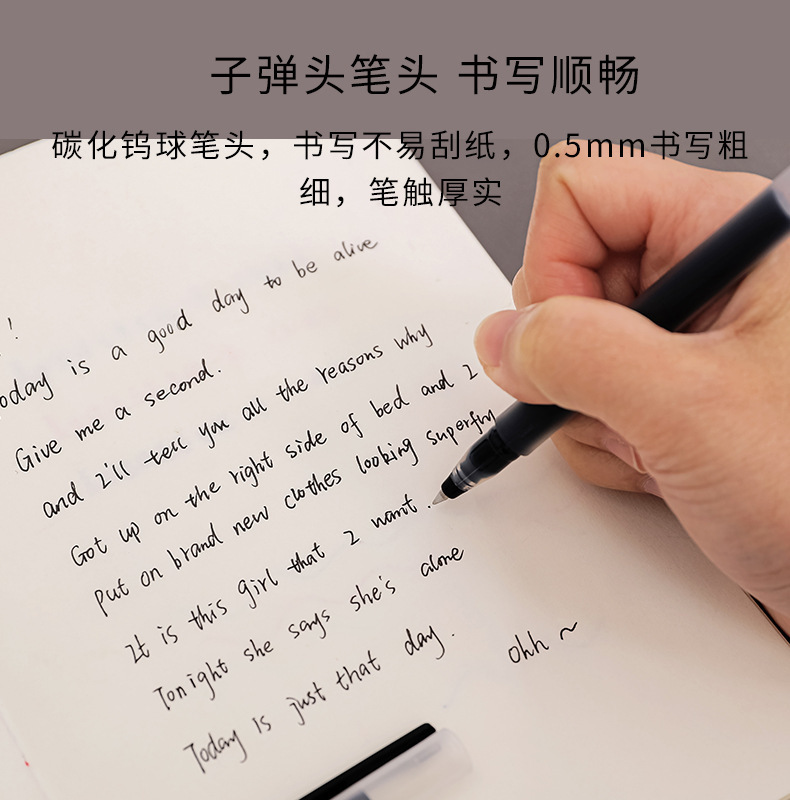 子弹头笔头 书写顺畅
碳化钨球笔头，书写不易刮纸，0.5mm书写粗
细，笔触厚实
!
oday is a good day to be alive
Give me a second.
and I'll tell you all the reasons why
Got up on the right side of bed and I
Put on brand new clothes looking superfly
It is this girl that I want.
Tonight she says she's alone
Today is just that day.
ohh ~